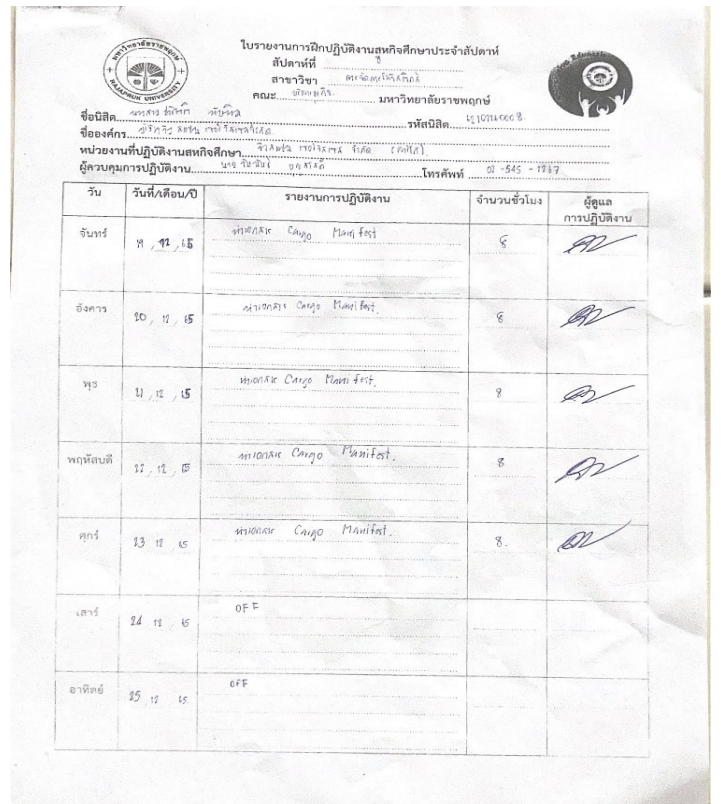 ใบรายงานการฝึกปฏิบัติงานสหกิจศึกษาประจำสัปดาห์
สัปดาห์ที่
สาขาวิชา
คณะ บริหารธุรกิจ มหาวิทยาลัยราชพฤกษ์
RAJAPRUK UNIVERSITY
ชื่อนิสิต นางสาว รหัสนิสิต
ชื่อองค์กร
หน่วยงานที่ปฏิบัติงานสหกิจศึกษา จำกัด
ผู้ควบคุมการปฏิบัติงาน นาย โทรศัพท์ 02-545-1267
วัน วันที่/เดือน/ปี รายงานการปฏิบัติงาน จำนวนชั่วโมง ผู้ดูแลการปฏิบัติงาน
จันทร์ 19, 12, 65 ทำเอกสาร Cargo Manifest 8
อังคาร 20, 12, 65 ทำเอกสาร Cargo Manifest. 8
พุธ 21, 12, 65 ทำเอกสาร Cargo Manifest. 8
พฤหัสบดี 22, 12, 65 ทำเอกสาร Cargo Manifest. 8
ศุกร์ 23 12 65 ทำเอกสาร Cargo Manifest. 8.
เสาร์ 24 12, 65 OFF
อาทิตย์ 25, 12 65 OFF